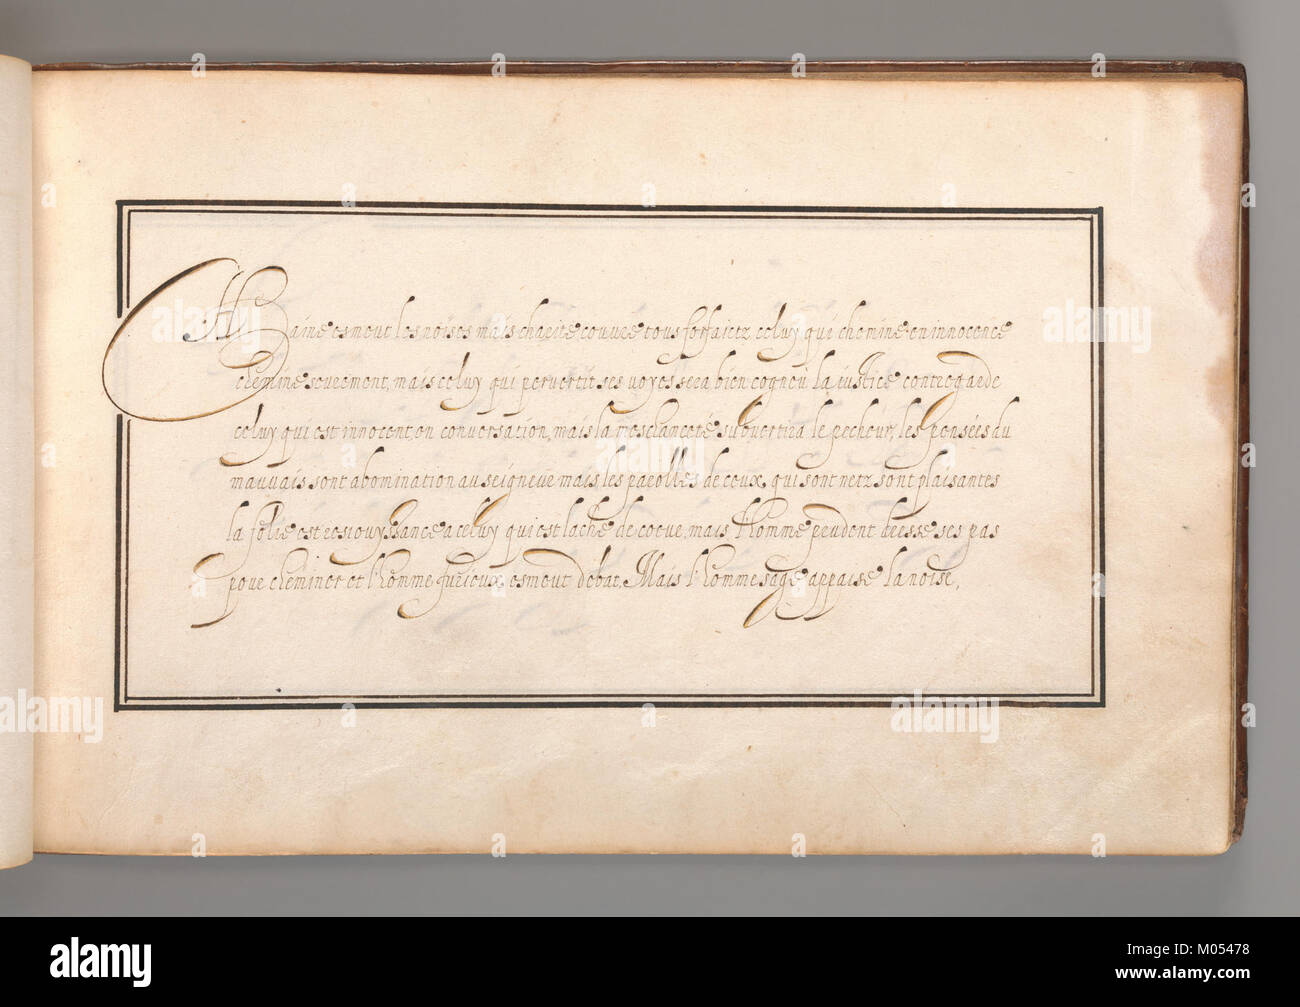 Haine esmeut les noises mais charité couvre tous forfaictz celuy qui chemine en innocence
chemine seurement, mais celuy qui pervertit ses voyes sera bien cogneu la iustice contregarde
celuy qui est innocent en conversation, mais la mesclanceté subvertira le pecheur, les pensées du
mauvais sont abomination au seigneur mais les parolles de ceux, qui sont netz sont plaisantes
la folie est resiouyssance a celuy qui est laché de coeur, mais l'homme prudent dresse ses pas
pour cheminer et l'homme furieux esmeut debat, Mais l'homme sage appaise la noise,
alamy
alamy
alamy
alamy
alamy
alamy
alamy
Image ID: M05478
www.alamy.com